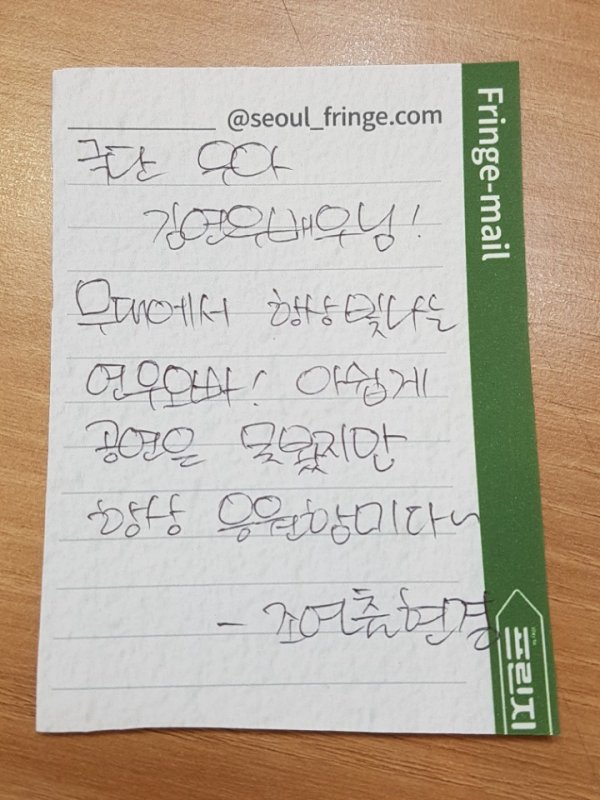 @seoul_fringe.com
Fringe-mail
극단 우아
김연우배우님!
무대에서 항상 빛나는
연우오빠! 아쉽게
공연은 못봤지만
항상 응원합미다~
- 조연출 현경
프린지